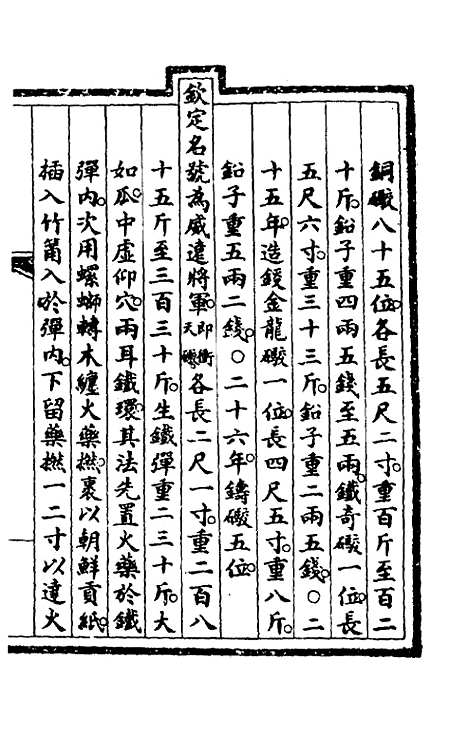 銅礮八十五位。各長五尺二寸。重百斤至百二
十斤。鉛子重四兩五錢至五兩。鐵奇礮一位。長
五尺六寸。重三十三斤。鉛子重二兩五錢。○二
十五年。造鋄金龍礮一位。長四尺五寸。重八斤。
鉛子重五兩二錢。○二十六年。鑄礮五位。
欽定名號為威遠將軍。即衝天礮各長二尺一寸。重二百八
十五斤至三百三十斤。生鐵彈重二三十斤。大
如瓜。中虛仰穴。兩耳鐵環。其法先置火藥於鐵
彈內。次用螺螄轉木纏火藥撚。裹以朝鮮貢紙。
插入竹筩入於彈內。下留藥撚一二寸以達火